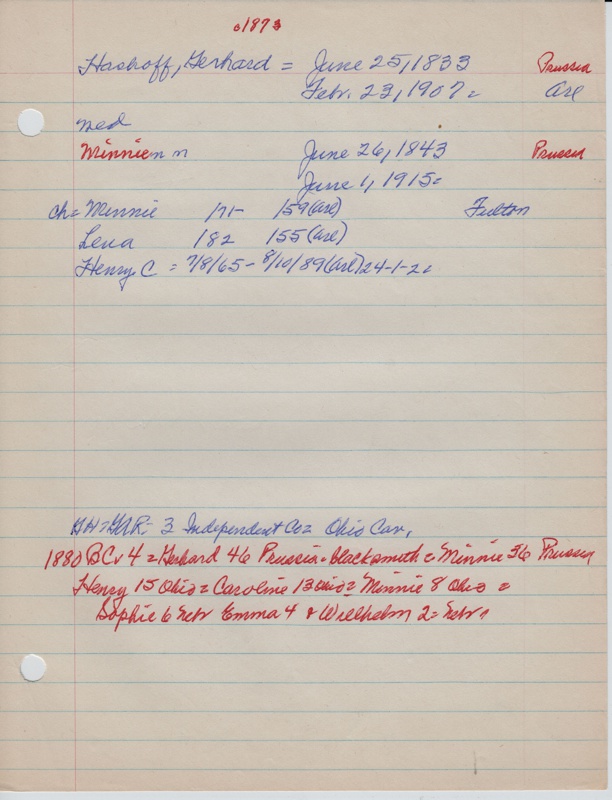 c1873
Hashoff, Gerhard = June 25, 1833 Prussia
Febr. 23, 1907 = Arl
med
Minnie n n June 26, 1843 Prussia
June 1, 1915 =
ch = Minnie /71- /59 (Arl) Fulton
Lena /82 /55 (Arl)
Henry C = 7/8/65 - 8/10/89 (Arl) 24-1-2 =
GH = GAR - 3 Independent Co = Ohio Cav.
1880 BC v 4 = Gerhard 46 Prussia = blacksmith = Minnie 36 Prussia
Henry 15 Ohio = Caroline 13 Ohio = Minnie 8 Ohio =
Sophie 6 Nebr Emma 4 & Wilhelm 2 = Nebr